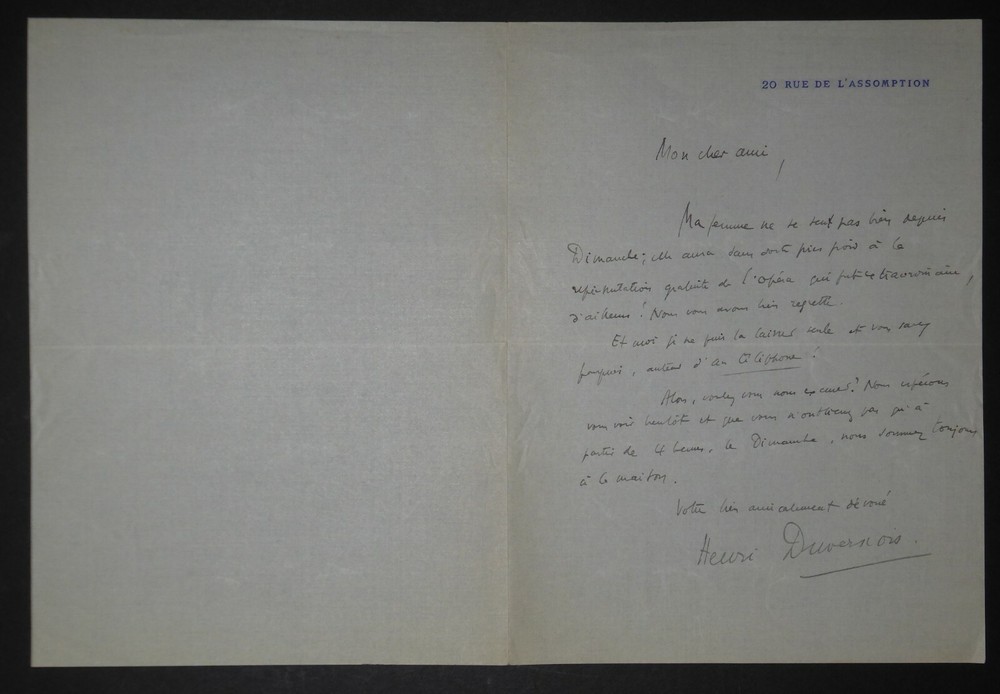 20 RUE DE L'ASSOMPTION
Mon cher ami,
Ma femme ne se sent pas bien depuis
Dimanche; elle aura sans doute pris froid à la
représentation gratuite de l'opéra qui fut extraordinaire,
d'ailleurs! Nous vous avons bien regretté.
Et moi je ne puis la laisser seule et vous savez
pourquoi, auteur d'"au téléphone"!
Alors, voulez vous nous excuser? Nous espérons
vous voir bientôt et que vous n'oublierez pas qu'à
partir de 4 heures, le Dimanche, nous sommes toujours
à la maison.
Votre bien amicalement dévoué
Henri Duvernois.